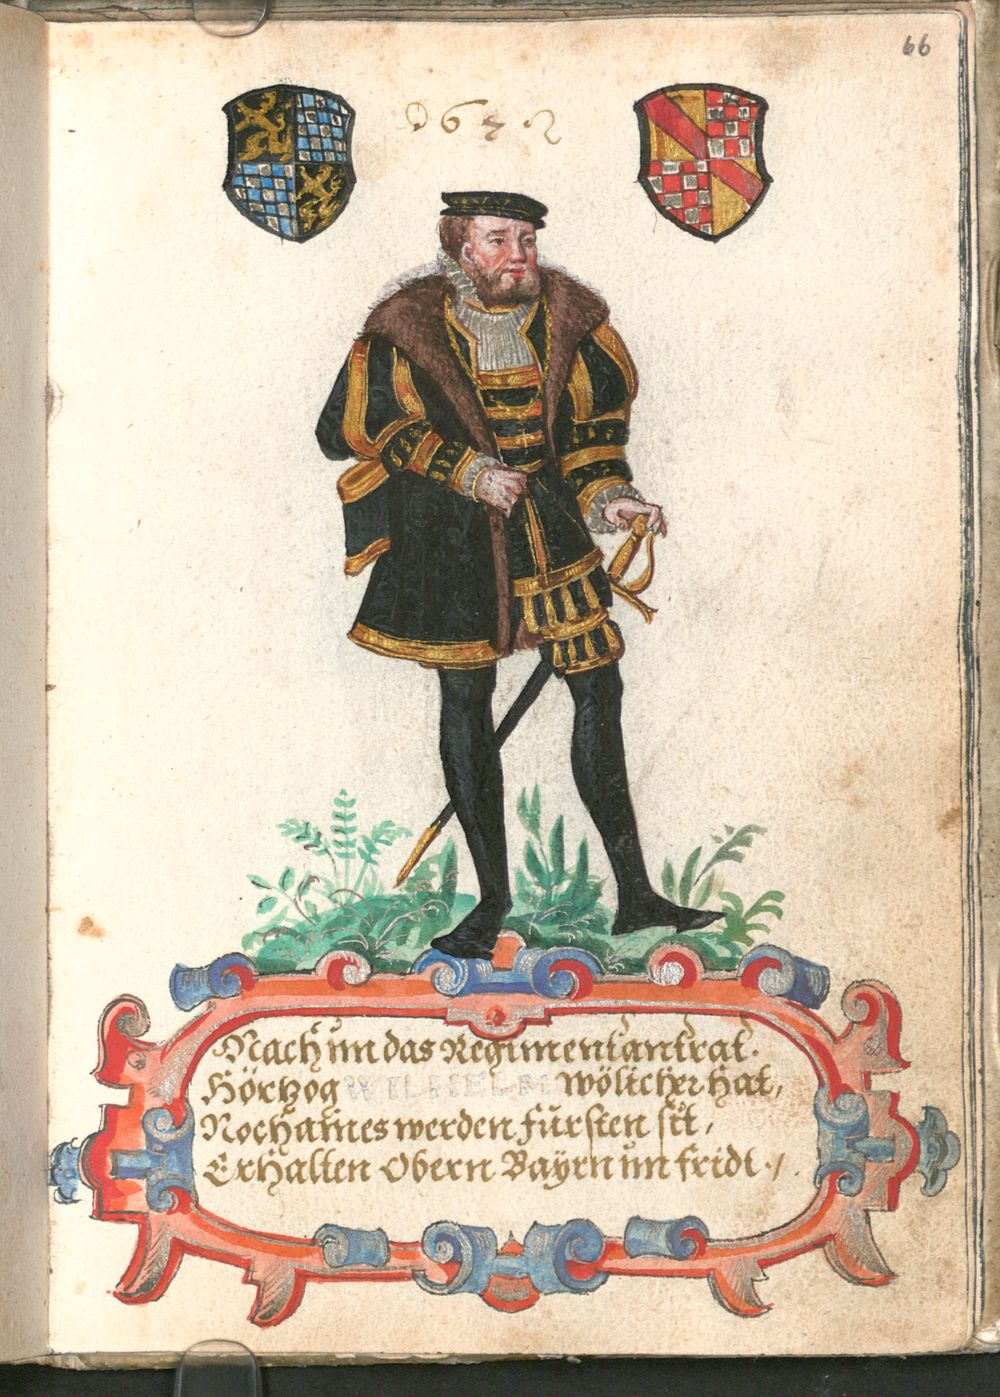 66
Nach im das Regiment antrat.
Hörtzog WILHELM wölicher hat,
Noch aines werden fürsten sit,
Erhalten Obern Bayrn im fridt ./.